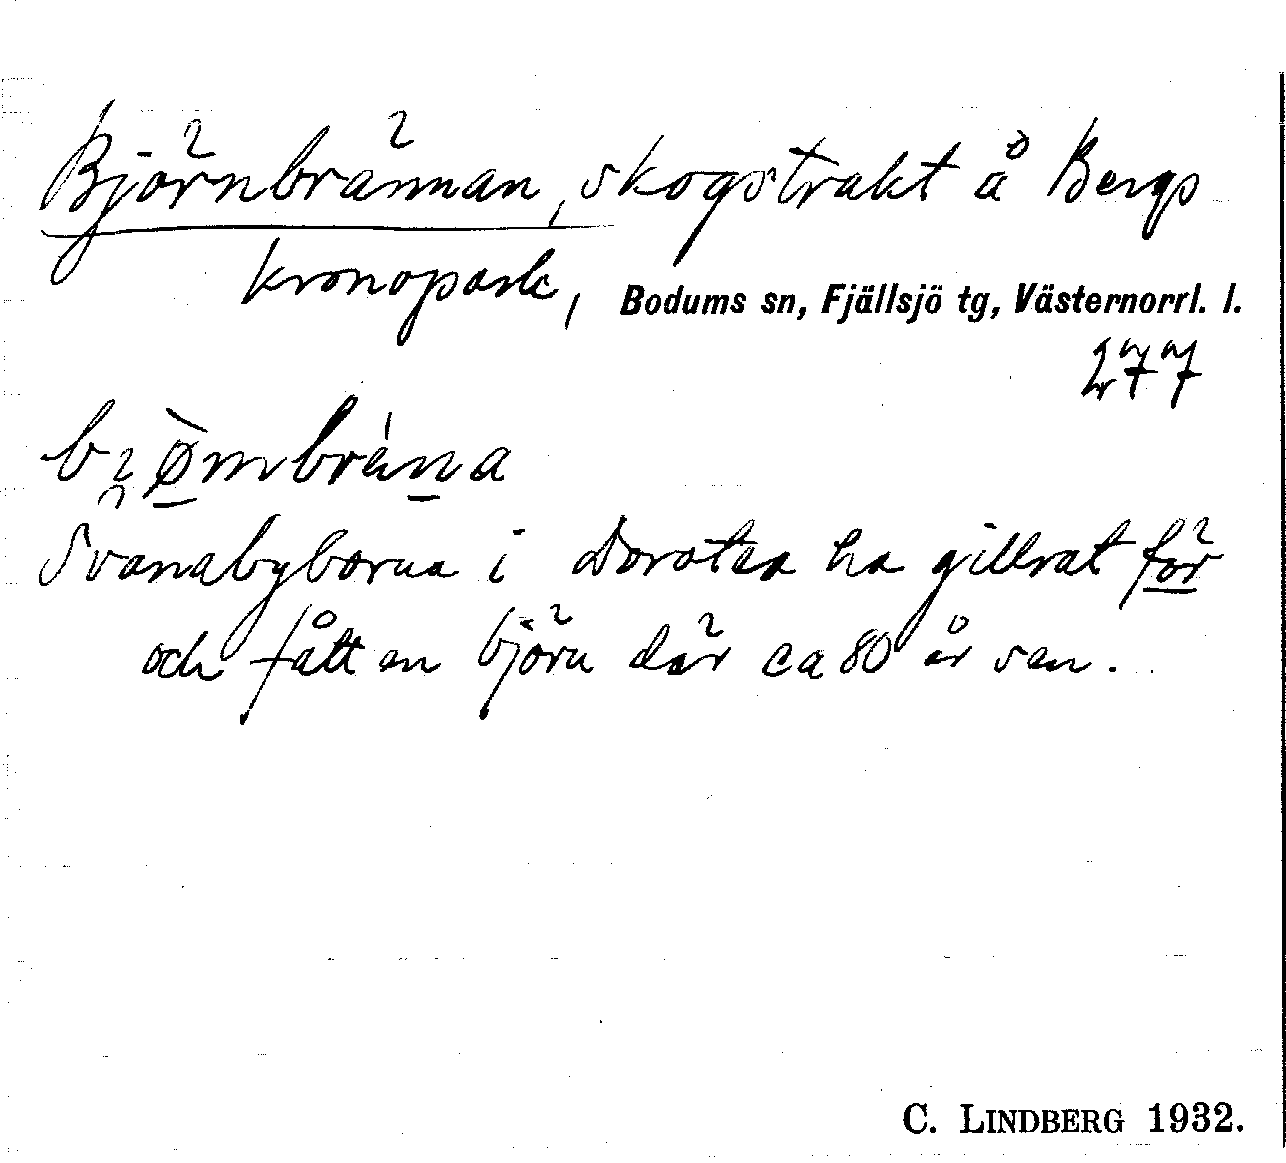 Björnbrännan, skogstrakt å Bergs
kronopark, Bodums sn, Fjällsjö tg, Västernorrl. l.
277
Svanabyborna i Dorotea ha gillrat för
och fått en björn där ca 80 år sen.
C. LINDBERG 1932.